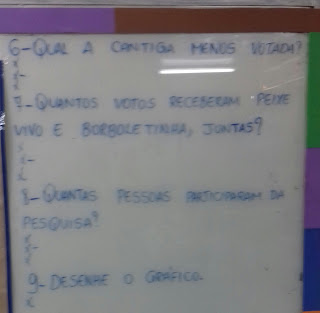 6-QUAL A CANTIGA MENOS VOTADA?
x
x-
x
7-QUANTOS VOTOS RECEBERAM PEIXE
VIVO E BORBOLETINHA, JUNTAS?
x
x-
x
8-QUANTAS PESSOAS PARTICIPARAM DA
PESQUISA?
x
x-
x
9-DESENHE O GRÁFICO.
x